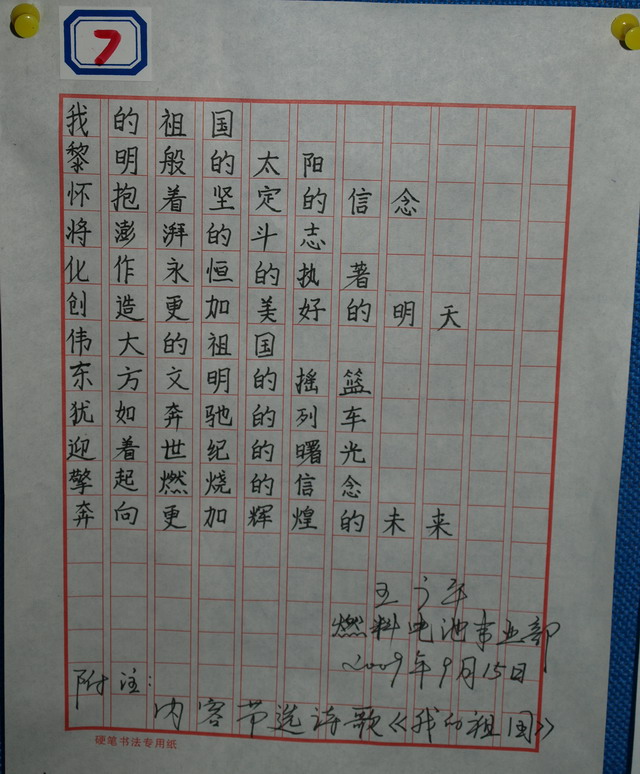 7
我的祖国
黎明般的太阳
怀抱着坚定的信念
将澎湃的斗志
化作永恒的执著
创造更加美好的明天
伟大的祖国
东方文明的摇篮
犹如奔驰的列车
迎着世纪的曙光
擎起燃烧的信念
奔向更加辉煌的未来
燃料电池事业部
2009年9月15日
附注：
内容节选诗歌《我的祖国》
硬笔书法专用纸